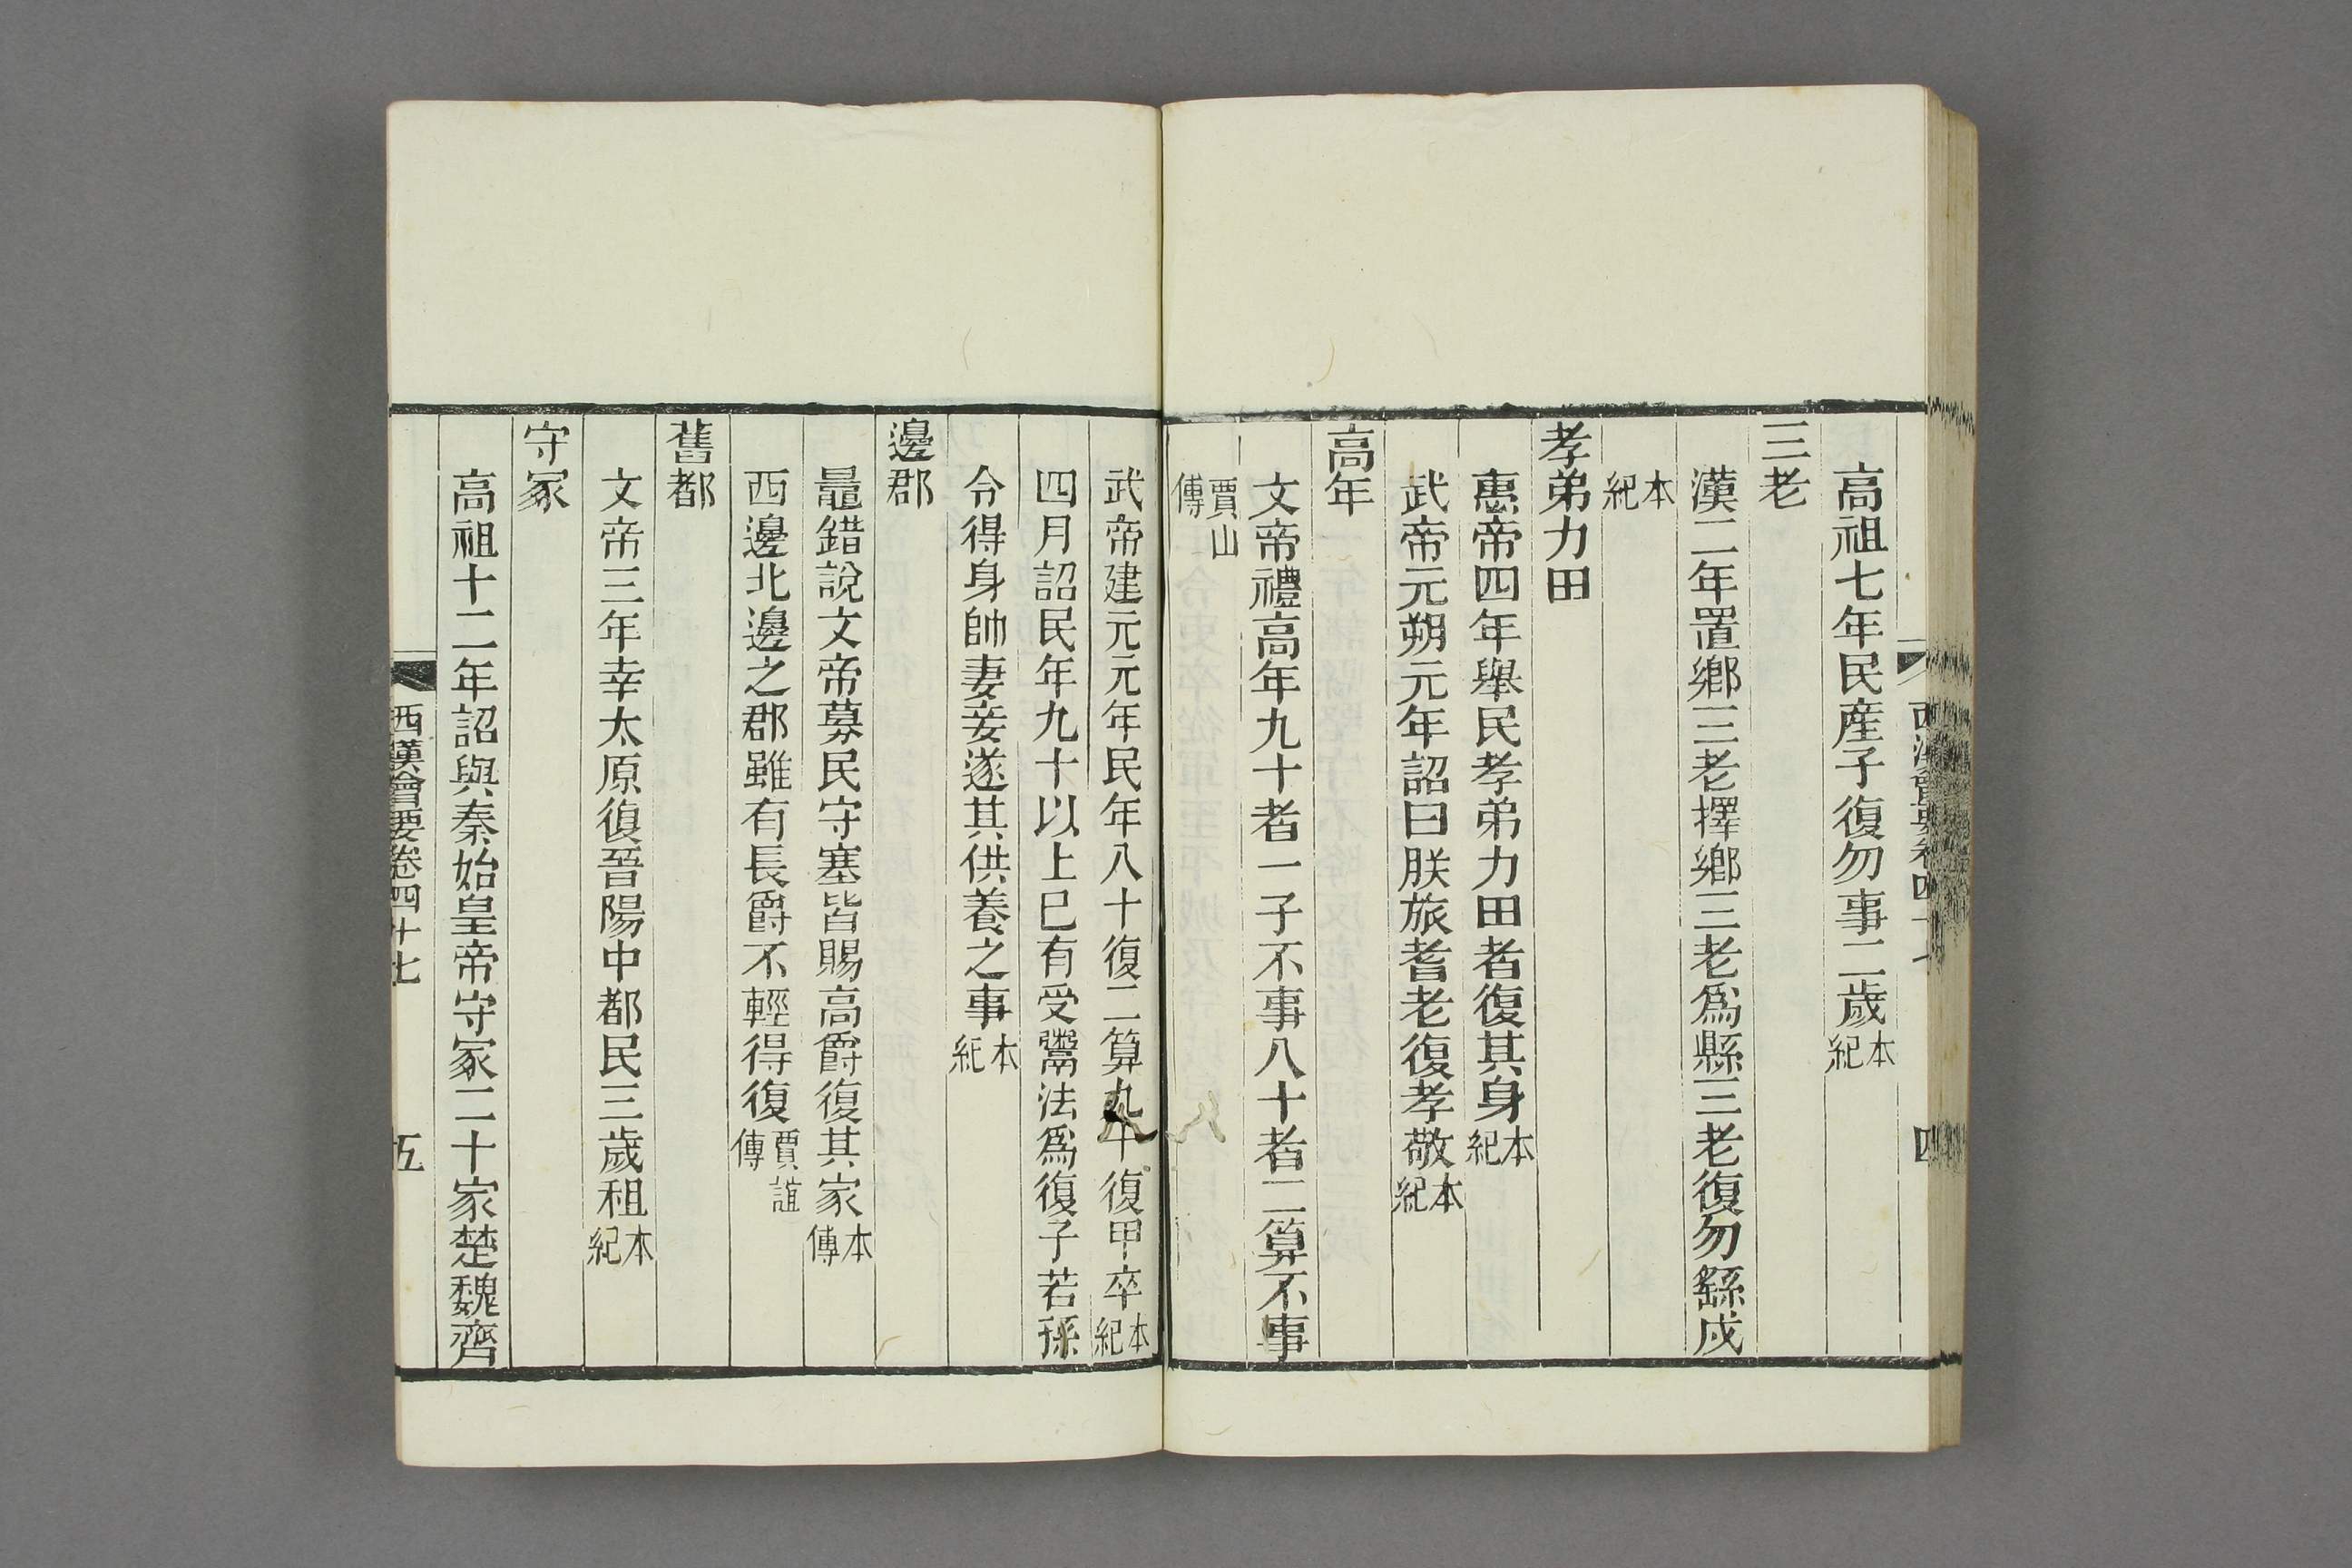 高祖七年民産子復勿事二歲本紀
三老
漢二年置鄉三老擇鄉三老爲縣三老復勿繇戍
本紀
孝弟力田
惠帝四年舉民孝弟力田者復其身本紀
武帝元朔元年詔曰朕旅耆老復孝敬本紀
高年
文帝禮高年九十者一子不事八十者二算不事
賈山傳
武帝建元元年民年八十復二算九十復甲卒本紀
四月詔民年九十以上巳有受鬻法爲復子若孫
令得身帥妻妾遂其供養之事本紀
邊郡
鼂錯說文帝募民守塞皆賜高爵復其家本傳
西邊北邊之郡雖有長爵不輕得復賈誼傳
舊都
文帝三年幸太原復晉陽中都民三歲租本紀
守冢
高祖十二年詔與秦始皇帝守冢二十家楚魏齊
西漢會要卷四十七
五